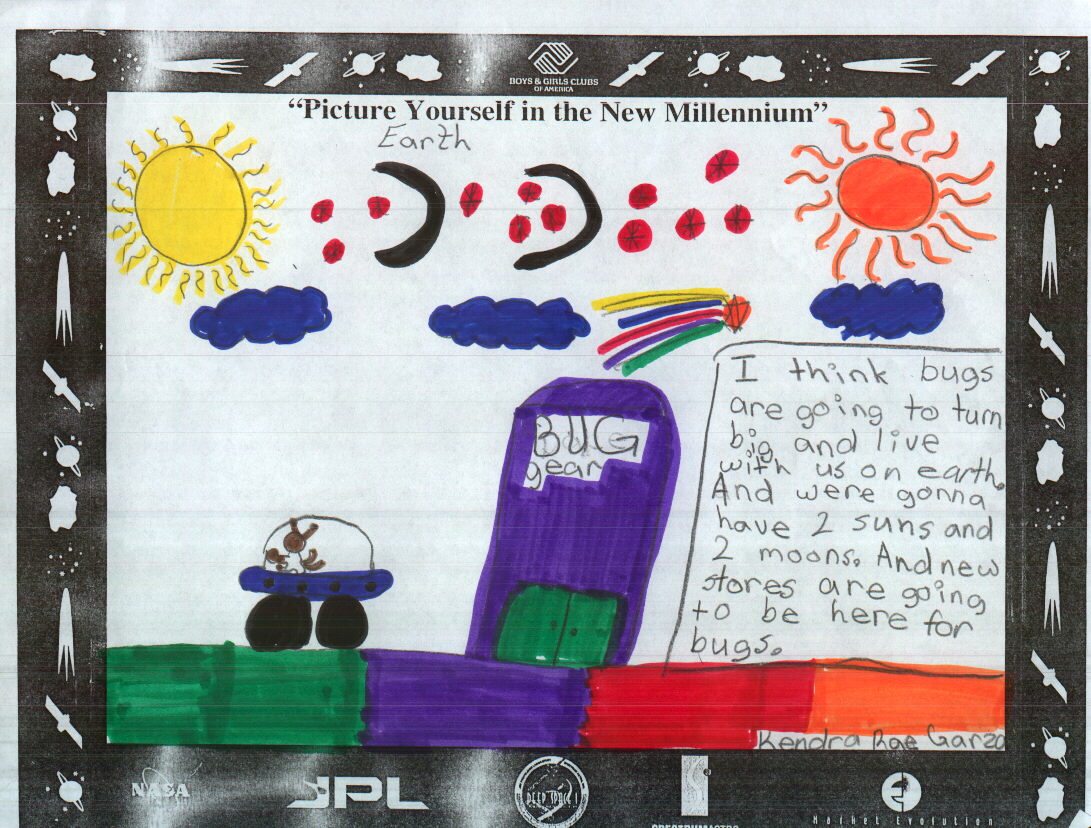 BOYS & GIRLS CLUBS
OF AMERICA
“Picture Yourself in the New Millennium”
Earth
BUG
gear
I think bugs
are going to turn
big and live
with us on earth.
And were gonna
have 2 suns and
2 moons. And new
stores are going
to be here for
bugs.
Kendra Rae Garza
NASA
JPL
DEEP SPACE 1
SPECTRUMASTRO
Market Evolution